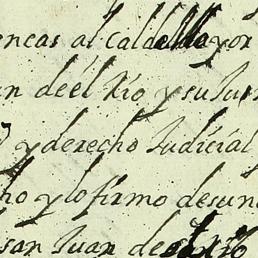 encas al Calde mayor
an de el Rio y su Jur
y derecho Judicial
ho y lo firmo de su n
san Juan de el rio